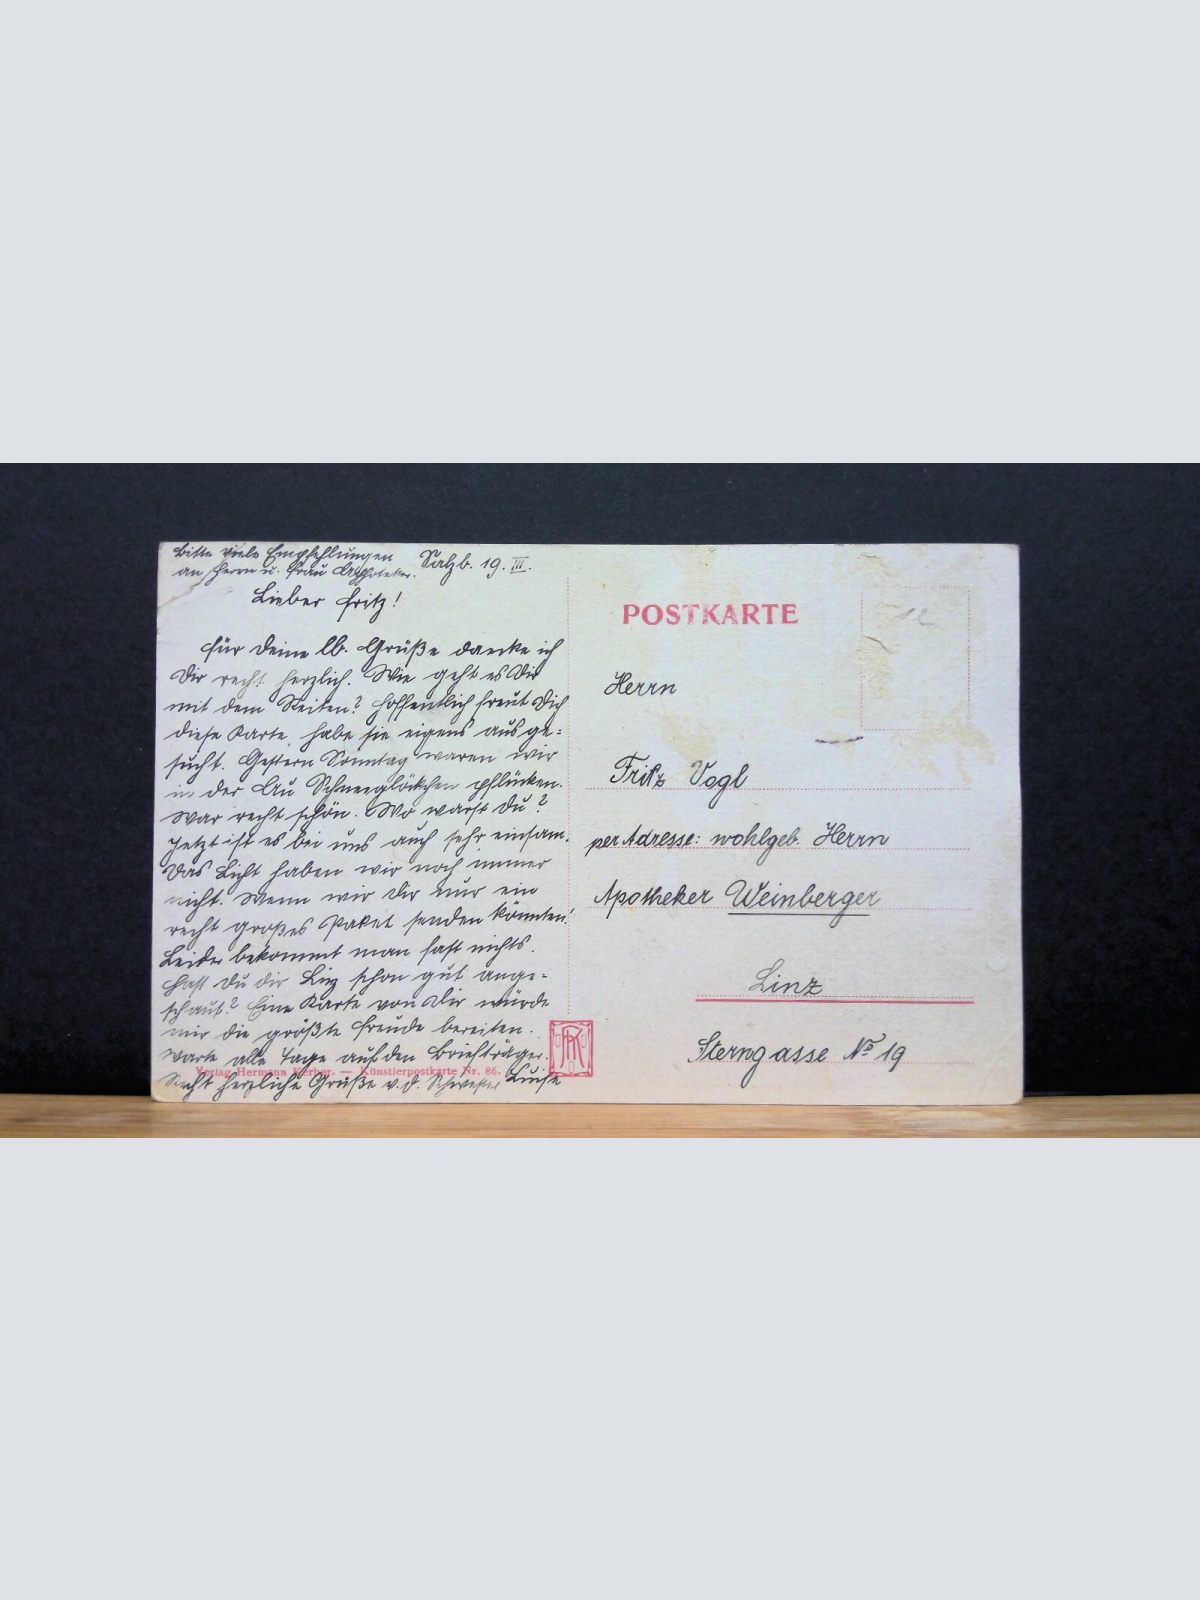 Bitte viele Empfehlungen
an Herrn u. Frau Apotheker.
Salzb. 19. III.
Lieber Fritz!
Für Deine lb. Grüße danke ich
Dir recht herzlich. Wie geht es Dir
mit dem Reiten? Hoffentlich freut Dich
diese Karte, habe sie eigens ausge-
sucht. Gestern Sonntag waren wir
in der Au Schneeglöckchen pflücken.
War recht schön. Wo warst Du?
Jetzt ist es bei uns auch sehr einsam.
Das Licht haben wir noch immer
nicht. Wenn wir Dir nur ein
recht großes Paket senden könnten!
Leider bekommt man fast nichts.
Hast Du dir Linz schon gut ange-
schaut? Eine Karte von Dir würde
mir die größte Freude bereiten.
Warte alle Tage auf den Briefträger.
Recht herzliche Grüße v. d. Schwester Luise
Verlag Hermann — Künstlerpostkarte Nr. 86.
POSTKARTE
12
Herrn
Fritz Vogl
per Adresse: wohlgeb. Herrn
Apotheker Weinberger
Linz
Sterngasse No 19